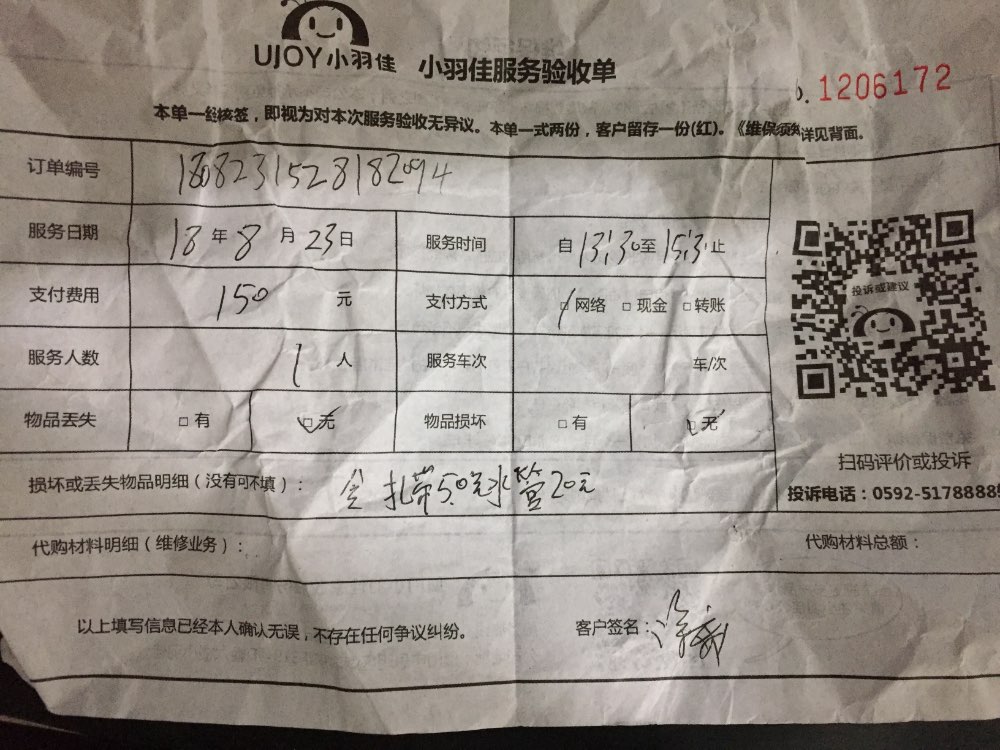 UJOY小羽佳 小羽佳服务验收单
1206172
本单一经核签，即视为对本次服务验收无异议。本单一式两份，客户留存一份(红)。《维保须知 详见背面。
订单编号
服务日期 18年8月23日 服务时间 自13:30至15:3 止
支付费用 150 元 支付方式 □网络 □现金 □转账
投诉或建议
服务人数 1 人 服务车次 车/次
物品丢失 □有 □无 物品损坏 □有 □无
扫码评价或投诉
损坏或丢失物品明细（没有可不填）： 扎带50元水管20元
投诉电话：0592-5178888
代购材料明细（维修业务）： 代购材料总额：
以上填写信息已经本人确认无误，不存在任何争议纠纷。 客户签名：